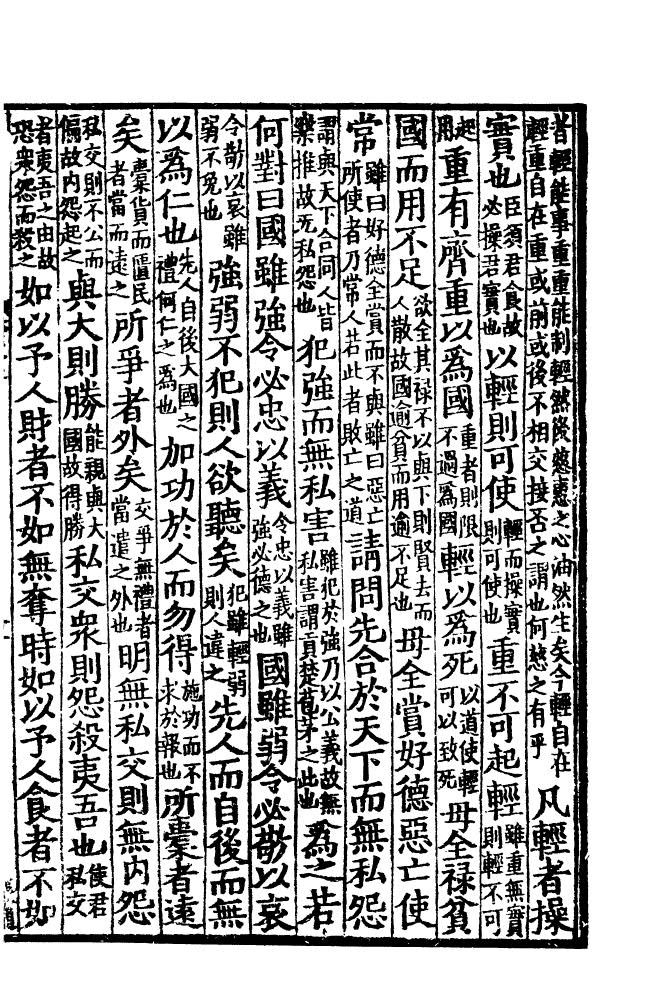 者輕能事重重能制輕然後慈惠之心油然生矣今輕自在輕重自在重或前或後不相交接吝之謂也何慈之有乎凡輕者操
實也臣須君食故必操君實也以輕則可使輕而操實則可使也重不可起輕雖重無實則輕不可
起用重有齊重以為國重者則限不過為國輕以為死以道使輕可以致死毋全祿貧
國而用不足欲全其祿不以與下則賢去而人散故國逾貧而用逾不足也毋全賞好德惡亡使
常雖曰好德全賞而不與雖曰惡亡所使者乃常人若此者敗亡之道請問先合於天下而無私怨
謂與天下合同人皆樂推故无私怨也犯強而無私害雖犯於強乃以公義故無私害謂貢楚苞茅之此也為之若
何對曰國雖強令必忠以義令忠以義雖強必德之也國雖弱令必敬以哀
令敬以哀雖弱不免也強弱不犯則人欲聽矣犯雖輕弱則人違之先人而自後而無
以為仁也先人自後大國之禮何仁之為也加功於人而勿得施功而不求於報也所橐者遠
矣橐貨而匱民者當而遠之所爭者外矣交爭無禮者當遣之外也明無私交則無內怨
私交則不公而偏故內怨起之與大則勝能親與大國故得勝私交眾則怨殺夷吾也使君私交
者夷吾之由故恐眾怨而殺之如以予人財者不如無奪時如以予人食者不如